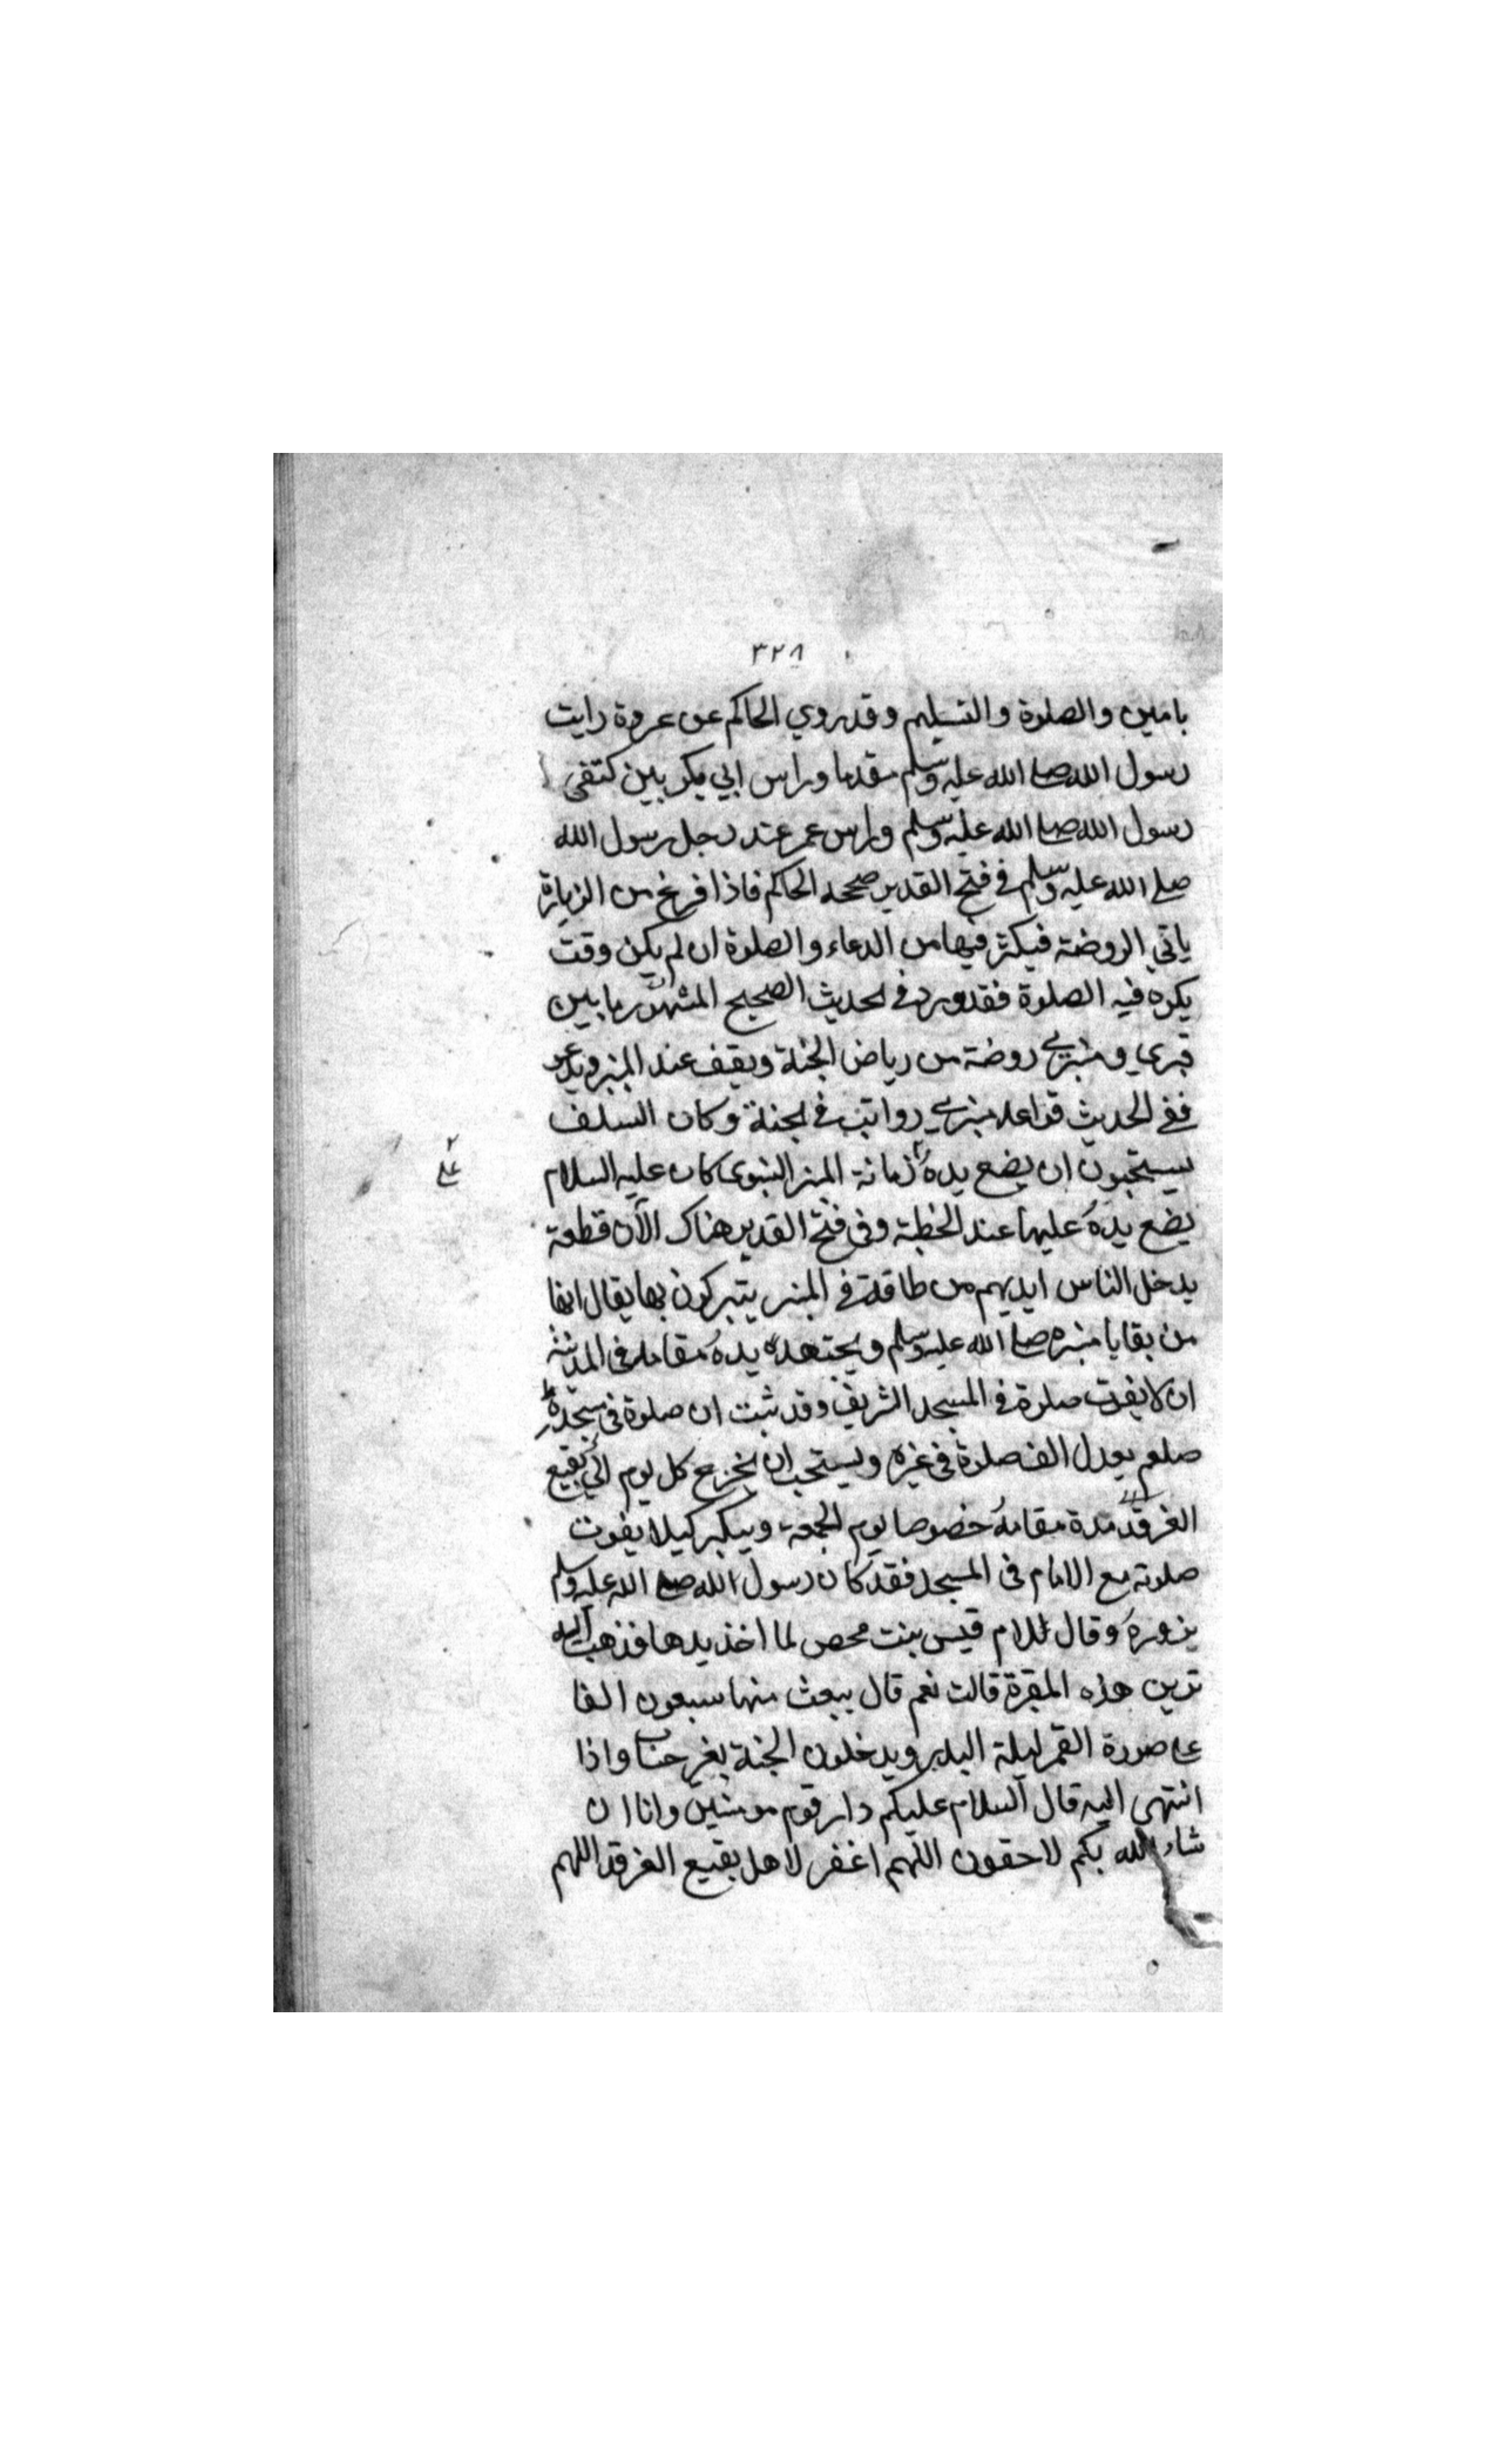 ٣٢٨
بامين والصلوة والتسليم وقد روي الحاكم عن عروة رايت
رسول الله صلے الله عليه وسلم مقدما وراس ابي بكر بين كتفى
رسول الله صلے الله عليه وسلم وراس عمر عند رجل رسول الله
صلے الله عليه وسلم فے فتح القدير صححه الحاكم فاذا فرغ من الزيارة
ياتي الروضة فيكثر فيها من الدعاء والصلوة ان لم يكن وقت
يكره فيه الصلوة فقد ورد فے الحديث الصحيح المشهور ما بين
قبري ومنبرے روضة من رياض الجنة ويقف عند المنبر ويدعو
ففے الحديث قواعد منبرے رواتب فے الجنة وكان السلف
يستحبون ان يضع يده زمانة المنبر النبوى كان عليه السلام
علے
٢
يضع يده عليها عند الخطبة وفى فتح القدير هناك الآن قطعة
يدخل الناس ايديهم من طاقة فے المنبر يتبركون بها يقال انها
من بقايا منبره صلے الله عليه وسلم ويجتهد يده مقامه فى المدينة
ان لا يفوت صلوة فے المسجد الشريف وقد ثبت ان صلوة فى مسجده
صلعم يعدل الف صلوة فى غيره ويستحب ان يخرج كل يوم الي بقيع
الغرقد مدة مقامه خصوصا يوم الجمعة ويبكر كيلا يفوت
صلوته مع الامام فى المسجد فقد كان رسول الله صلے الله عليه وسلم
يزوره وقال للام قيس بنت محصن لما اخذ يدها فذهب اليه
ترين هذه المقبرة قالت نعم قال يبعث منها سبعون الفا
علے صورة القمر ليلة البدر ويدخلون الجنة بغير حساب واذا
انتهى اليه قال السلام عليكم دار قوم مومنين وانا ان
شاء الله بكم لاحقون اللهم اغفر لاهل بقيع الغرقد اللهم